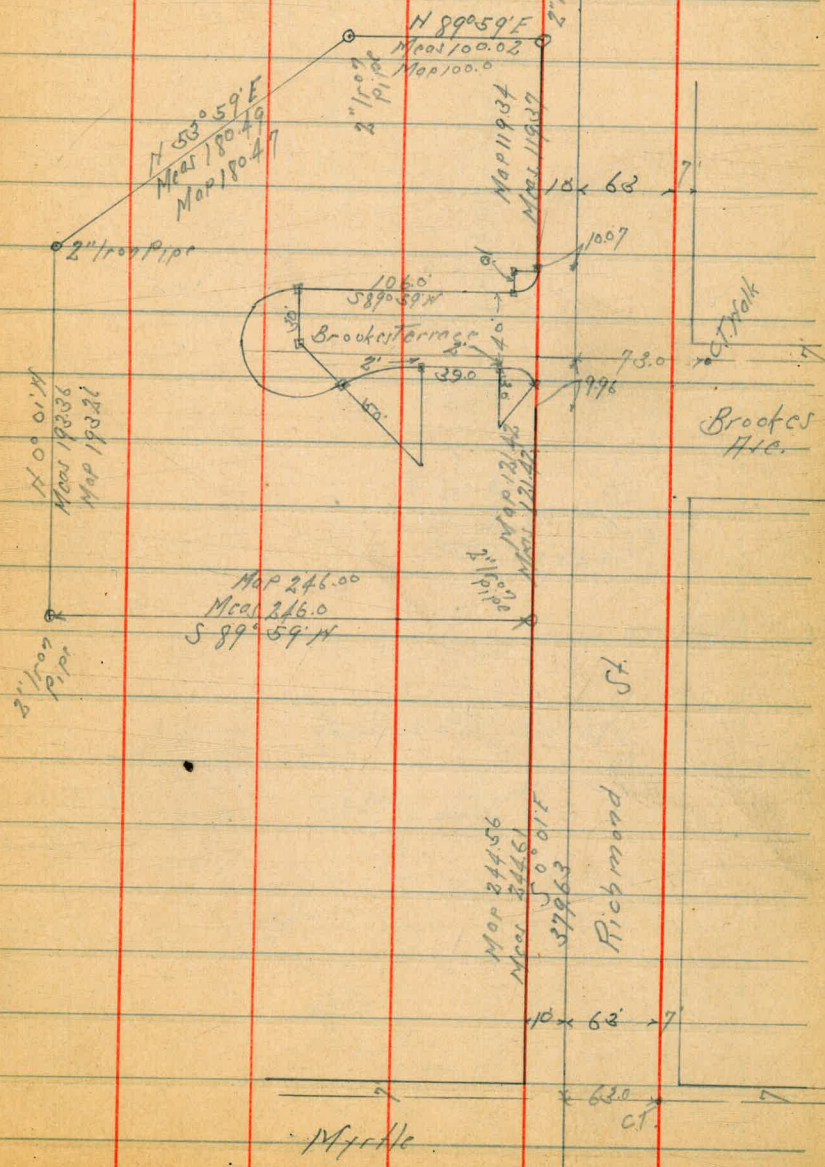 N 89°59'E
Meas 100.02
Map 100.0
2"
2" Iron
Pipe
N 53°59'E
Meas 180.49
Map 180.47
Map 119.34
Meas 119.37
10' 63 7'
2" Iron Pipe
10.07
10'
106.0'
S 89°59'W
30'
Brookes Terrace
40'
2'
2'
39.0
73.0
C.T. Walk
7'
9.96
60'
Brookes
Ave.
N 0°01'W
Meas 193.36
Map 193.26
Map 121.42
Meas 121.42
2" Iron
Pipe
Map 246.00
Meas 246.0
S 89°59'W
2" Iron
Pipe
St.
Richmond
Map 244.56
Meas 244.61
S 0°01'E
379.63
10' 63' 7'
7
63.0
C.T.
7
Myrtle